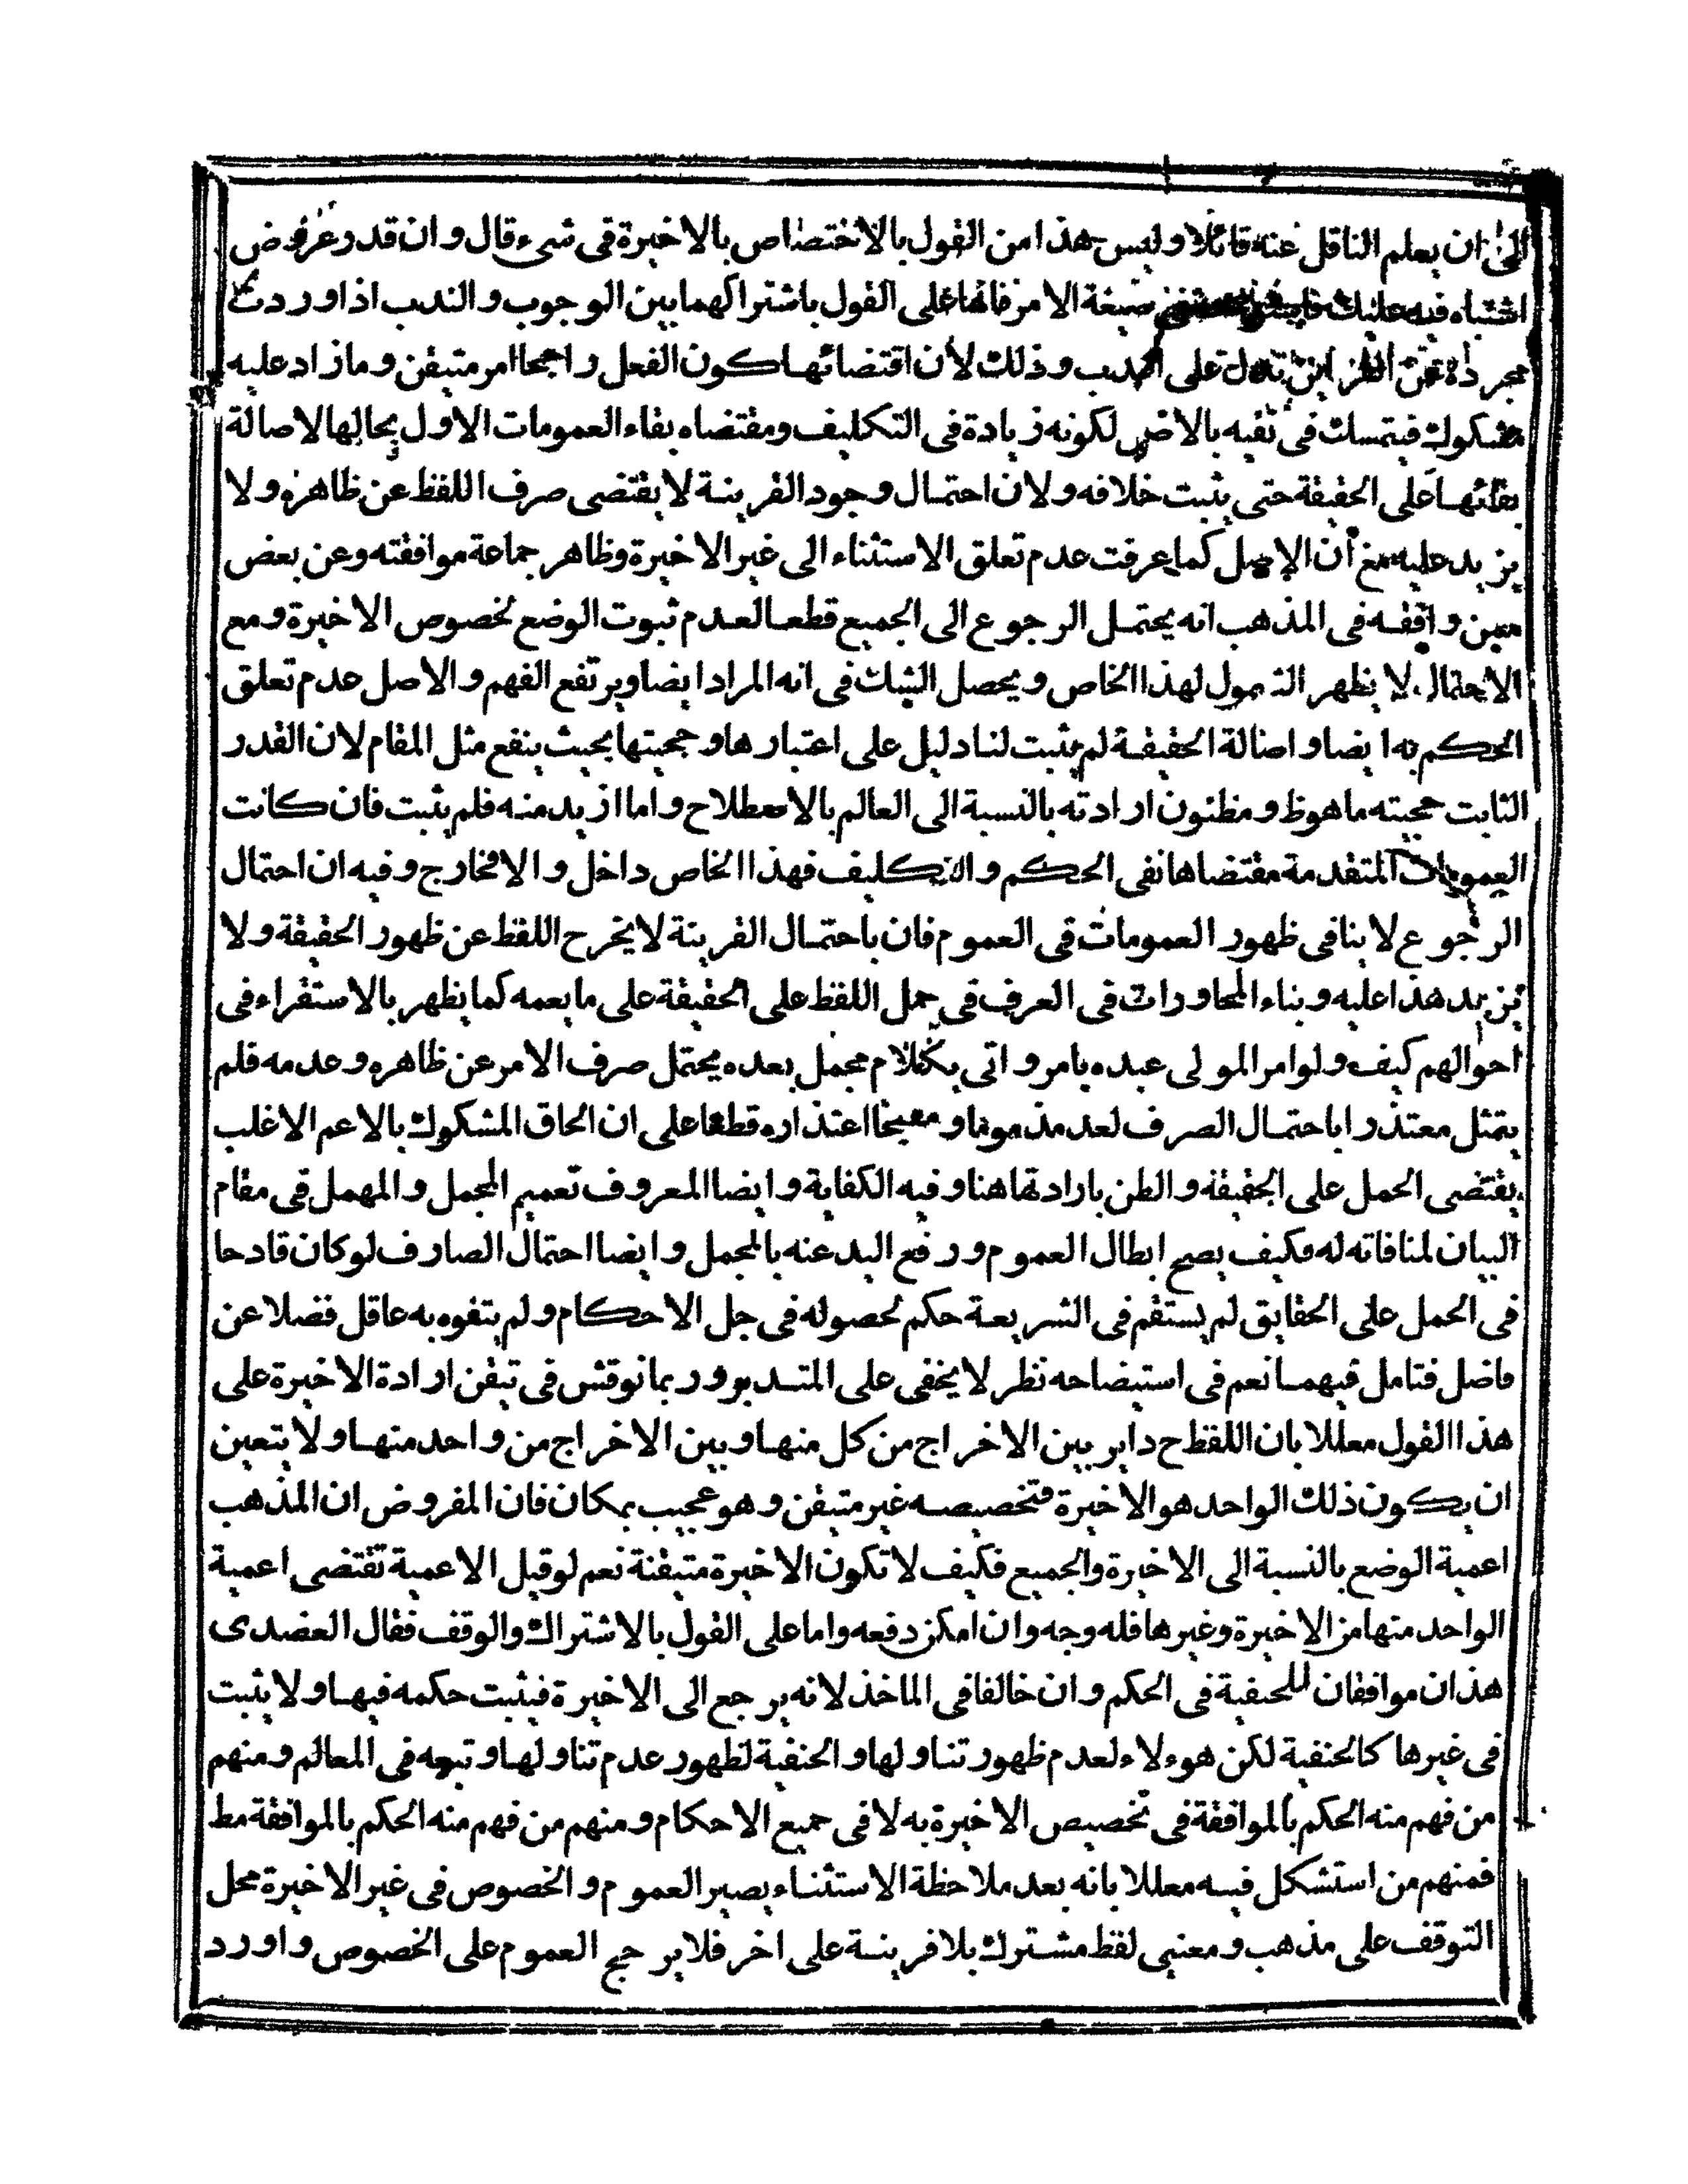 الى ان يعلم الناقل عنه قائلا وليس هذا من القول بالاختصاص بالاخيرة فى شىء قال وان قدر عروض
اشتباه فيه عليك صيغة الامر فانها على القول باشتراكهما بين الوجوب والندب اذا وردت
مجردة عن القراين تدل على الندب وذلك لأن اقتضائها كون الفعل راجحا امر متيقن وما زاد عليه
مشكوك فيتمسك فى نفيه بالاصل لكونه زيادة فى التكليف ومقتضاه بقاء العمومات الاول بحالها لاصالة
بقائها على الحقيقة حتى يثبت خلافه ولان احتمال وجود القرينة لا يقتضى صرف اللفظ عن ظاهره ولا
يزيد عليه مع أن الاصل كما عرفت عدم تعلق الاستثناء الى غير الاخيرة وظاهر جماعة موافقته وعن بعض
ممن وافقه فى المذهب انه يحتمل الرجوع الى الجميع قطعا لعدم ثبوت الوضع لخصوص الاخيرة ومع
الاحتمال لا يظهر الشمول لهذا الخاص ويحصل الشك فى انه المراد ايضا ويرتفع الفهم والاصل عدم تعلق
الحكم به ايضا واصالة الحقيقة لم يثبت لنا دليل على اعتبارها وحجيتها بحيث ينفع مثل المقام لان القدر
الثابت حجيته ما هو ظ ومظنون ارادته بالنسبة الى العالم بالاصطلاح واما ازيد منه فلم يثبت فان كانت
العمومات المتقدمة مقتضاها نفى الحكم والتكليف فهذا الخاص داخل والا فخارج وفيه ان احتمال
الرجوع لا ينافى ظهور العمومات فى العموم فان باحتمال القرينة لا يخرج اللفظ عن ظهور الحقيقة ولا
يزيد هذا عليه وبناء المحاورات فى العرف فى حمل اللفظ على الحقيقة على ما يعمه كما يظهر بالاستقراء فى
احوالهم كيف ولو امر المولى عبده بامر واتى بكلام مجمل بعده يحتمل صرف الامر عن ظاهره وعدمه فلم
يمتثل معتذرا باحتمال الصرف لعد مذموما و اعتذاره قطعا على ان الحاق المشكوك بالاعم الاغلب
يقتضى الحمل على الحقيقة والظن بارادتها هنا وفيه الكفاية وايضا المعروف تعميم المجمل والمهمل فى مقام
البيان لمنافاته له فكيف يصح ابطال العموم ورفع اليد عنه بالمجمل وايضا احتمال الصارف لو كان قادحا
فى الحمل على الحقايق لم يستقم فى الشريعة حكم لحصوله فى جل الاحكام ولم يتفوه به عاقل فضلا عن
فاضل فتامل فيهما نعم فى استيضاحه نظر لا يخفى على المتدبر وربما نوقش فى تيقن ارادة الاخيرة على
هذا القول معللا بان اللفظ ح داير بين الاخراج من كل منها وبين الاخراج من واحد منها ولا يتعين
ان يكون ذلك الواحد هو الاخيرة فتخصيصه غير متيقن وهو عجيب بمكان فان المفروض ان المذهب
اعمية الوضع بالنسبة الى الاخيرة والجميع فكيف لا تكون الاخيرة متيقنة نعم لو قيل الاعمية تقتضى اعمية
الواحد منها من الاخيرة وغيرها فله وجه وان امكن دفعه واما على القول بالاشتراك والوقف فقال العضدى
هذان موافقان للحنفية فى الحكم وان خالفا فى الماخذ لانه يرجع الى الاخيرة فيثبت حكمه فيها ولا يثبت
فى غيرها كالحنفية لكن هوءلاء لعدم ظهور تناولها والحنفية لظهور عدم تناولها وتبعه فى المعالم ومنهم
من فهم منه الحكم بالموافقة فى تخصيص الاخيرة به لا فى جميع الاحكام ومنهم من فهم منه الحكم بالموافقة مط
فمنهم من استشكل فيسه معللا بانه بعد ملاحظة الاستثناء يصير العموم والخصوص فى غير الاخيرة محل
التوقف على مذهب ومعنيى لفظ مشترك بلا قرينة على اخر فلا يرجح العموم على الخصوص واورد